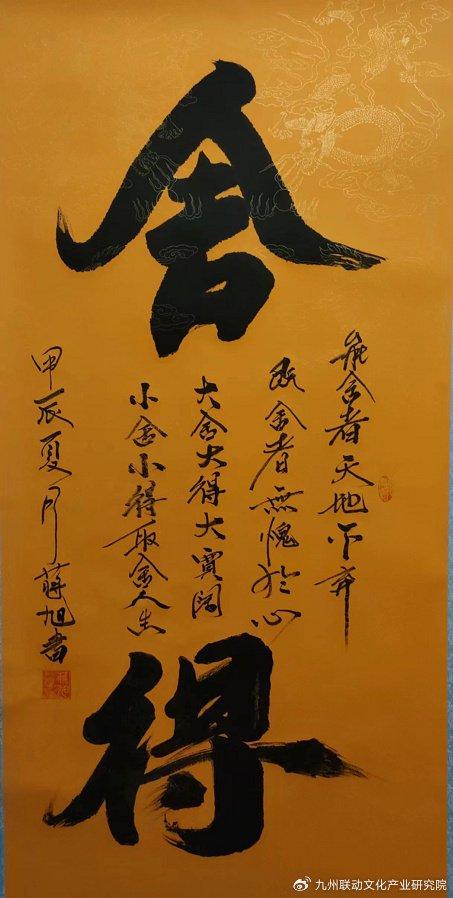 舍得
能舍者天地不弃
舍者無愧於心
大舍大得大寬阔
小舍小得取舍人生
甲辰夏月蔣旭書
九州联动文化产业研究院